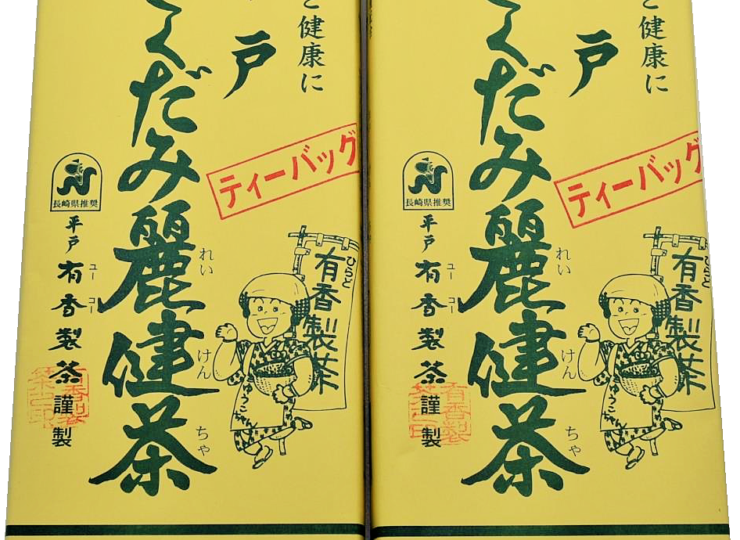 と健康に
戸
くだみ麗健茶
れい
けん
ちゃ
ティーバッグ
長崎県推奨
平戸
有香製茶謹製
ユーコー
ひらど
有香製茶
と健康に
戸
くだみ麗健茶
れい
けん
ちゃ
ティーバッグ
長崎県推奨
平戸
有香製茶謹製
ユーコー
ひらど
有香製茶